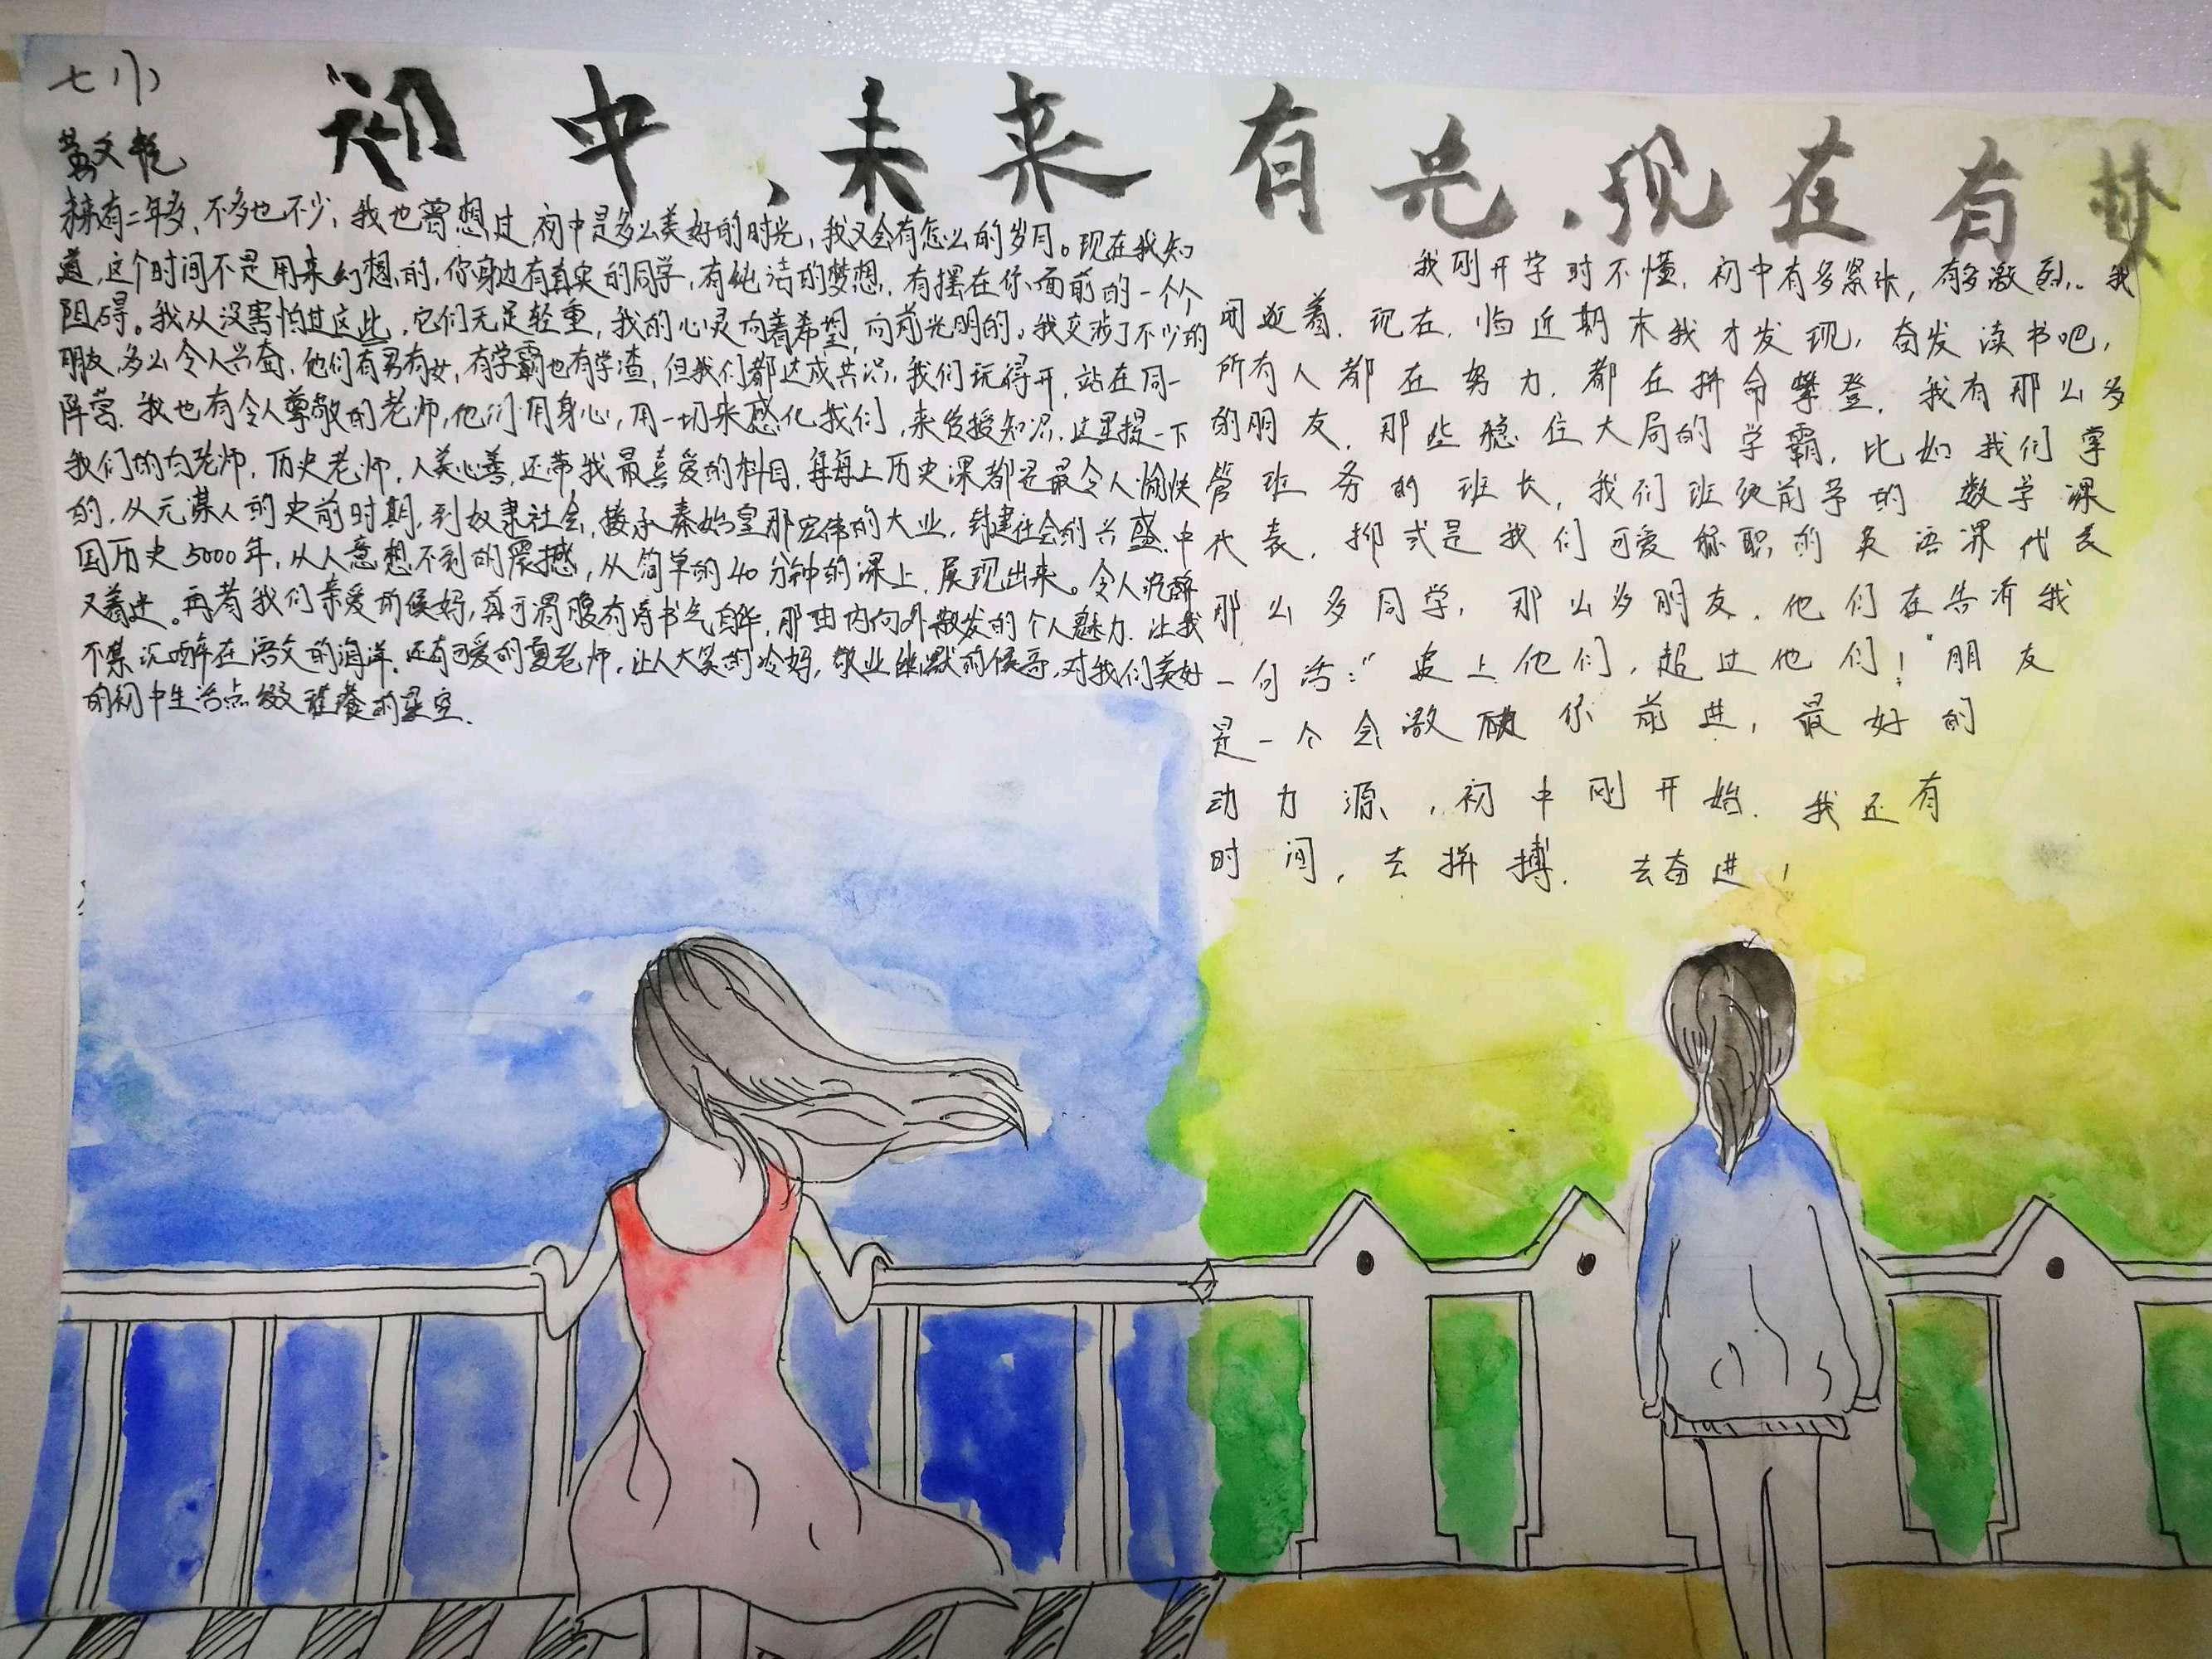 初中、未来有光、现在有梦
七小
黄文
拥有二年多,不多也不少,我也曾想过初中是多么美好的时光,我又会有怎么的岁月。现在我知
道,这个时间不是用来幻想的,你身边有真实的同学,有纯洁的梦想,有摆在你面前的一个个
阻碍。我从没害怕过这些,它们无足轻重,我的心灵向着希望,向前光明的,我交涉了不少的
朋友,多么令人兴奋,他们有男有女,有学霸也有学渣,但我们都达成共识,我们玩得开,站在同一
阵营.我也有令人尊敬的老师,他们用身心,用一切来感化我们,来传授知识.这里提一下
我们的向老师,历史老师,人美心善,还带我最喜爱的科目,每每上历史课都是最令人愉快
的,从元谋人的史前时期,到奴隶社会,接承秦始皇那宏伟的大业,封建社会的兴盛.中
国历史5000年,从人意想不到的震撼,从简单的40分钟的课上,展现出来。令人沉醉
又着迷。再者我们亲爱的侯妈,真可谓腹有诗书气自华,那由内向外散发的个人魅力.让我
不禁沉醉在语文的海洋.还有可爱的夏老师,让人大笑的冷妈,敬业幽默的侯哥,对我们美好
的初中生活点缀璀璨的星空.
我刚开学时不懂,初中有多紧张,有多激烈.我
闭逃着.现在,临近期末我才发现,奋发读书吧,
所有人都在努力.都在拼命攀登.我有那么多
的朋友,那些稳住大局的学霸,比如我们掌
管班务的班长,我们班级前茅的数学课
代表,抑或是我们可爱称职的英语课代表
那么多同学,那么多朋友.他们在告诉我
一句话:“追上他们,超过他们!”朋友
是一个会激你前进,最好的
动力源,初中刚开始.我还有
时间,去拼搏.去奋进!